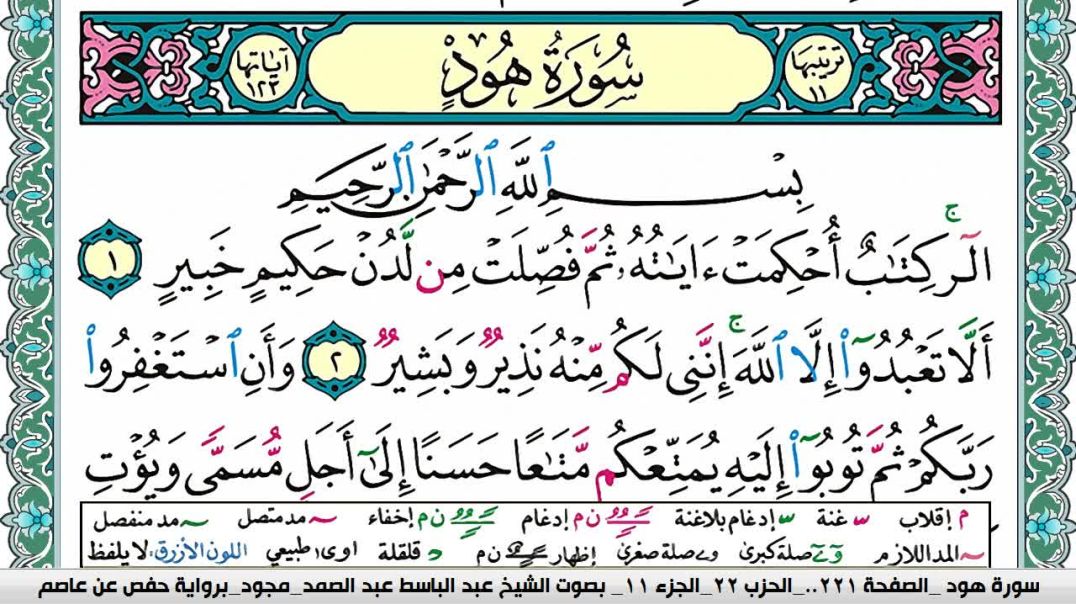 ترتيبها ١١ سُورَةُ هُودٍ آياتها ١٢٣
بِسْمِ ٱللَّهِ ٱلرَّحْمَٰنِ ٱلرَّحِيمِ
الٓر ۚ كِتَٰبٌ أُحْكِمَتْ ءَايَٰتُهُۥ ثُمَّ فُصِّلَتْ مِن لَّدُنْ حَكِيمٍ خَبِيرٍ ١
أَلَّا تَعْبُدُوٓا۟ إِلَّا ٱللَّهَ ۚ إِنَّنِى لَكُم مِّنْهُ نَذِيرٌ وَبَشِيرٌ ٢ وَأَنِ ٱسْتَغْفِرُوا۟
رَبَّكُمْ ثُمَّ تُوبُوٓا۟ إِلَيْهِ يُمَتِّعْكُم مَّتَٰعًا حَسَنًا إِلَىٰٓ أَجَلٍ مُّسَمًّى وَيُؤْتِ
م إقلاب غنة إدغام بلاغنة ن م إدغام ن م إخفاء مد متصل مد منفصل
المد اللازم صلة كبرى صلة صغرى إظهار ن م د قلقلة اوى طبيعي اللون الأزرق: لا يلفظ
سورة هود _الصفحة ٢٢١.._الحزب ٢٢_الجزء ١١_ بصوت الشيخ عبد الباسط عبد الصمد_مجود_برواية حفص عن عاصم